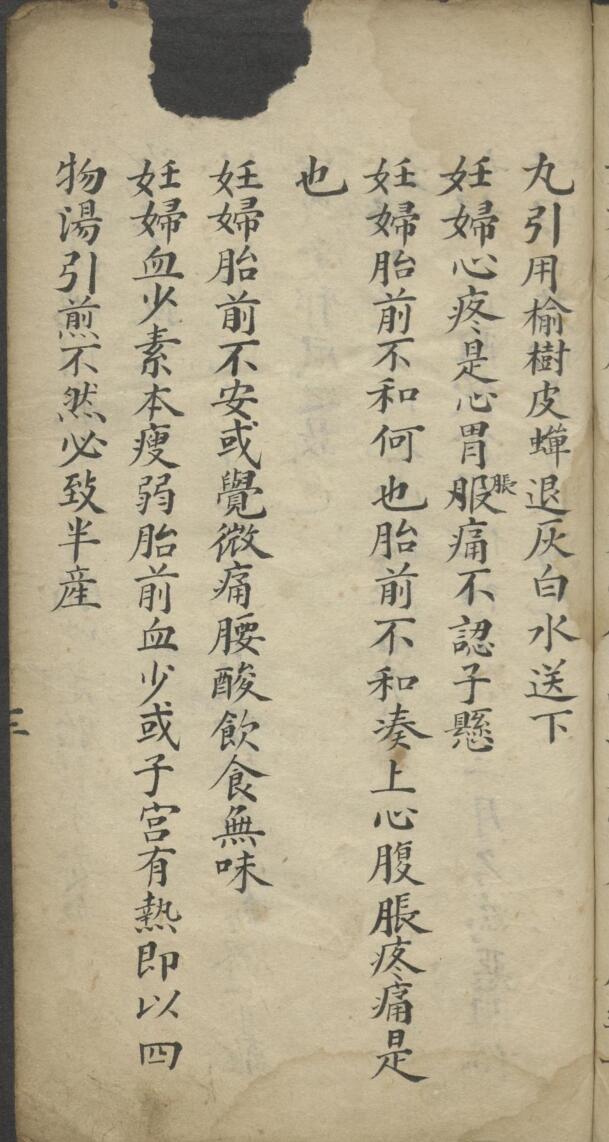 丸引用榆樹皮蟬退灰白水送下
妊婦心疼是心胃服脹痛不認子懸
妊婦胎前不和何也胎前不和湊上心腹脹疼痛是
也
妊婦胎前不安或覺微痛腰酸飲食無味
妊婦血少素本瘦弱胎前血少或子宮有熱即以四
物湯引煎不然必致半産
三